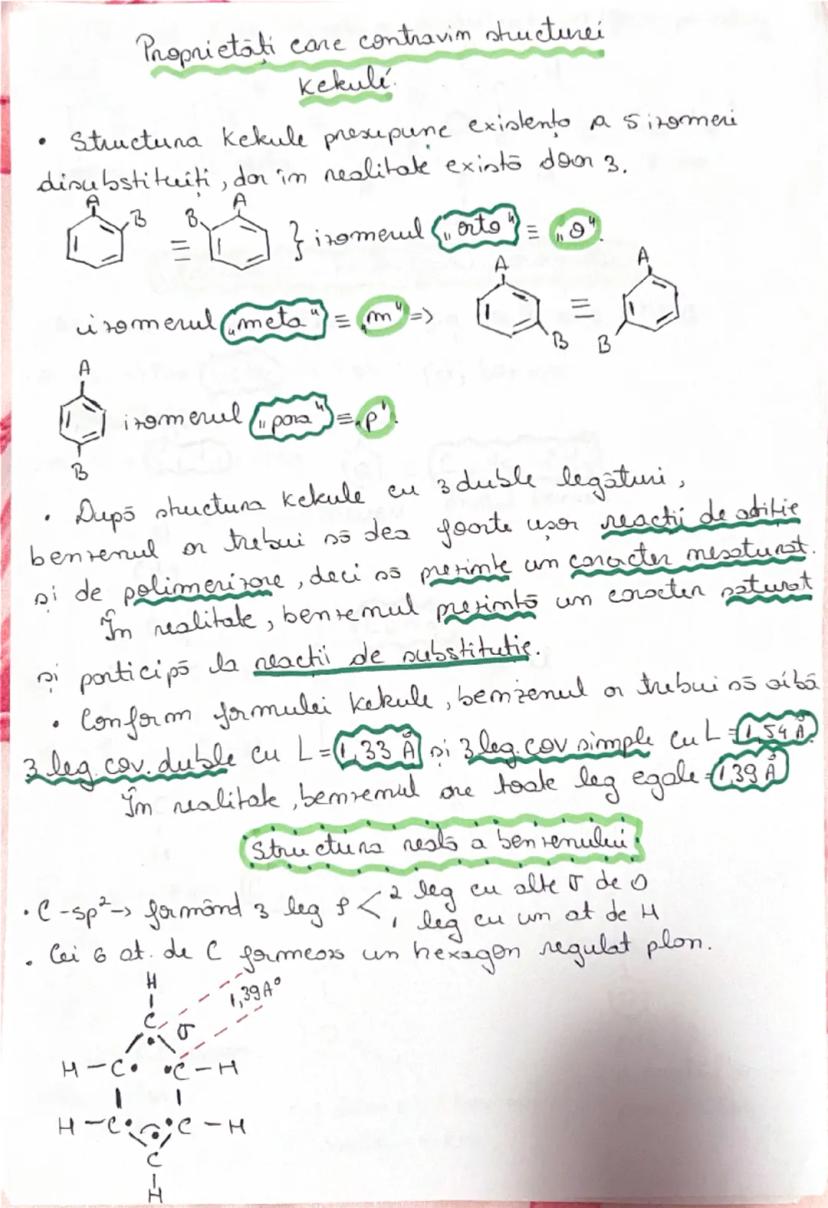 Proprietăți care contravin structurei
Kekulé.
• Structura Kekule presupune existența a 5 izomeri
disubstituiți, dar în realitate există doar 3.
A B ≡ B A } izomerul „orto" ≡ „o".
izomerul „meta" ≡ „m" => A B ≡ A B
A B izomerul „para" ≡ „p".
• După structura Kekule cu 3 duble legături,
benzenul ar trebui să dea foarte ușor reacții de adiție
și de polimerizare, deci să prezinte un caracter nesaturat.
În realitate, benzenul prezintă un caracter saturat
și participă la reacții de substituție.
• Conform formulei Kekule, benzenul ar trebui să aibă
3 leg. cov. duble cu L = 1,33 Å și 3 leg. cov simple cu L = 1,54 Å.
În realitate, benzenul are toate leg egale = 1,39 Å
Structura reală a benzenului
• C - sp² -> formând 3 leg < 2 leg cu alte de
1 leg cu un at de H
• Cei 6 at. de C formează un hexagon regulat plan.
H
1,39 A°
C σ
H - C • • C - H
H - C • • C - H
C
H